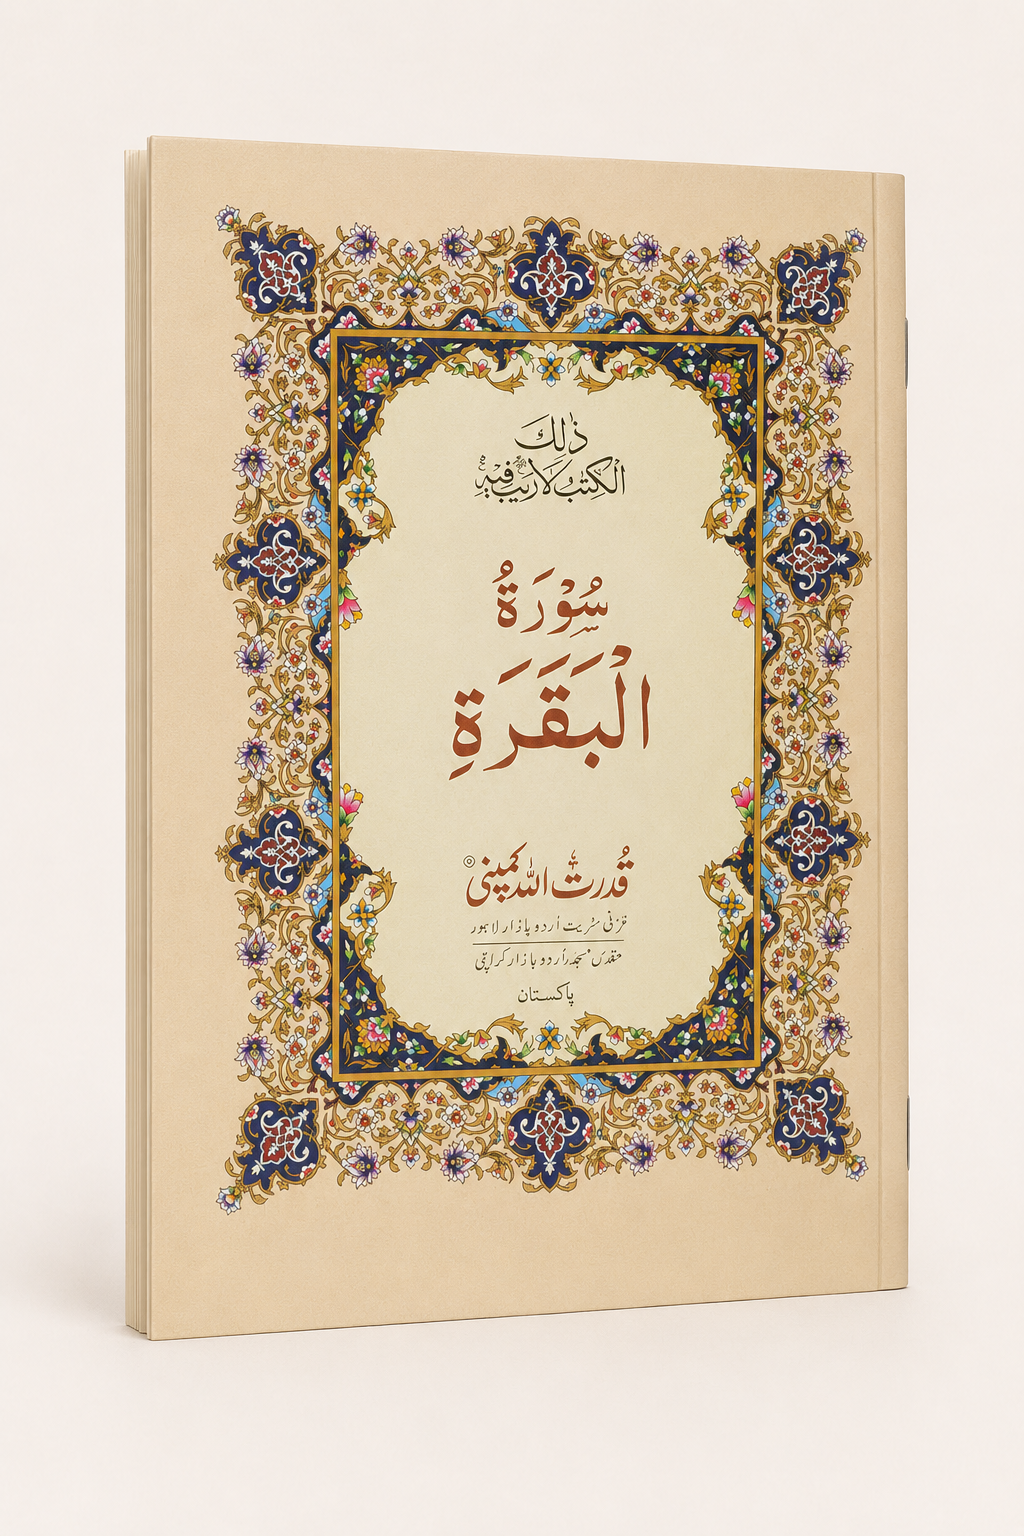 ذٰلِكَ
الْكِتٰبُ لَا رَيْبَ فِيْهِ
سُوْرَةُ
الْبَقَرَةِ
قُدرت اللہ کمپنی
اردو بازار لاہور
اردو بازار کراچی
پاکستان